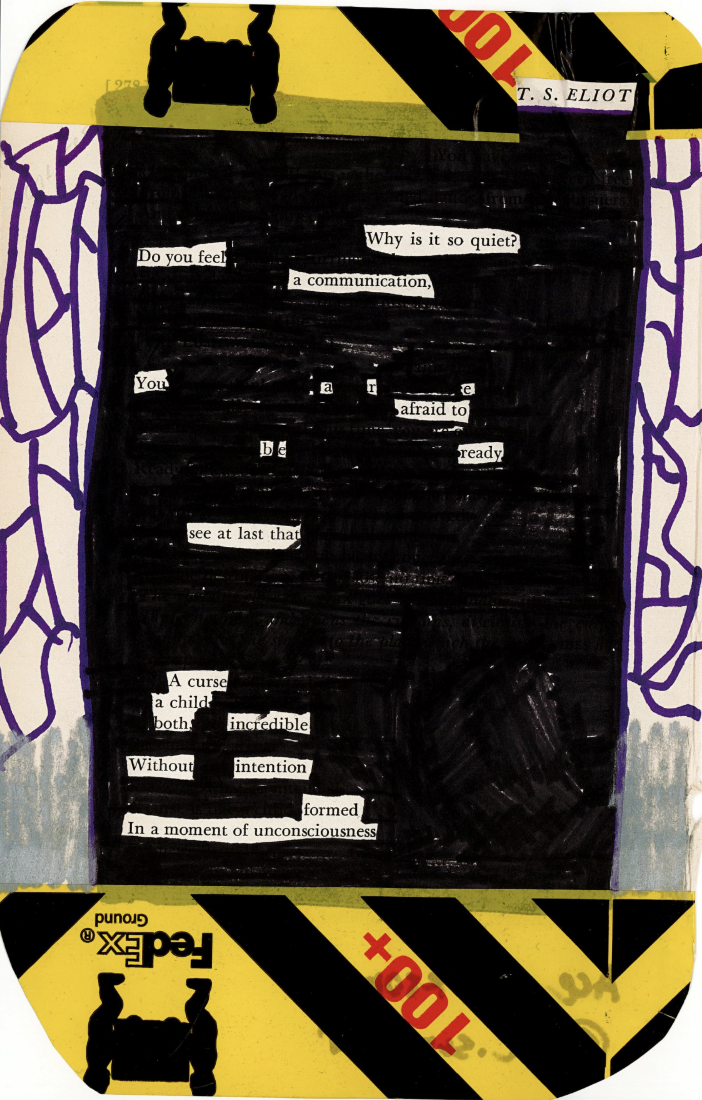 [278
100
T. S. ELIOT
Why is it so quiet?
Do you feel
a communication,
You a r e
afraid to
b e ready
see at last that
A curse
a child
both, incredible
Without intention
formed
In a moment of unconsciousness
FedEx®
Ground
100+